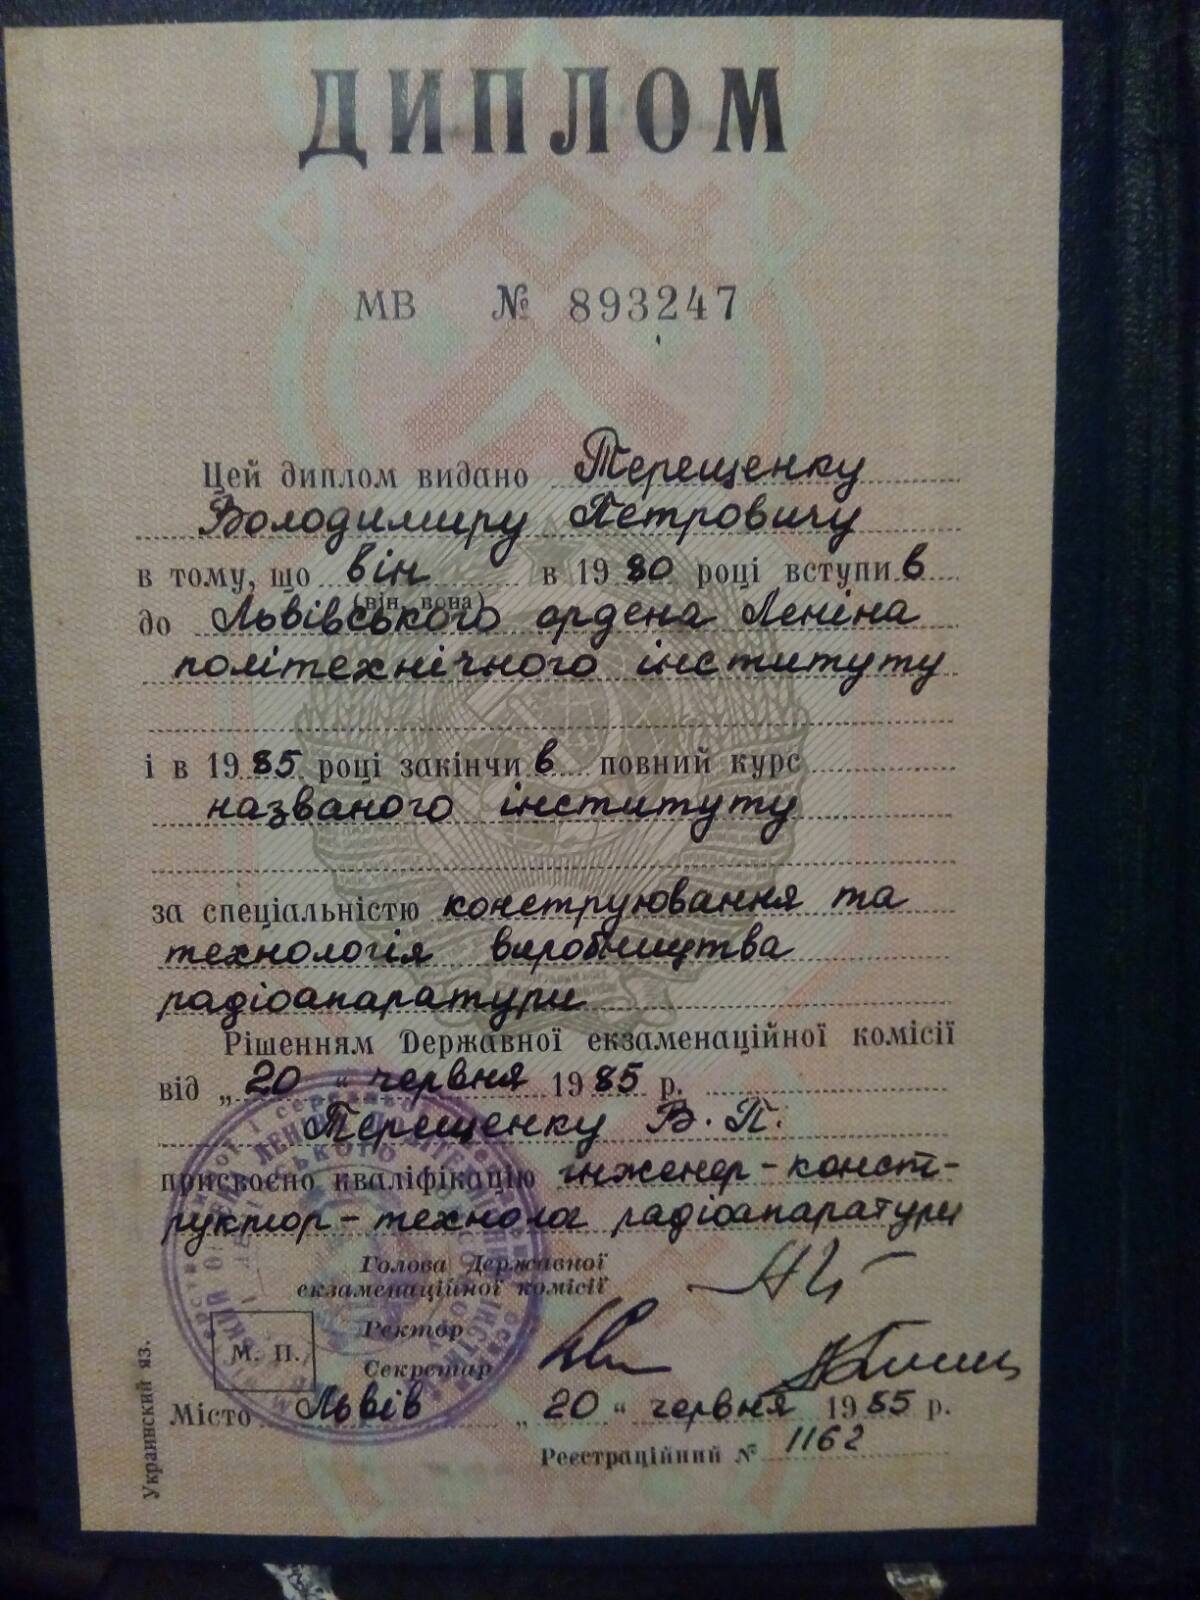 ДИПЛОМ
МВ № 893247
Цей диплом видано Терещенку
Володимиру Петровичу
в тому, що він в 1980 році вступив
(він, вона)
до Львівського ордена Леніна
політехнічного інституту
і в 1985 році закінчив повний курс
названого інституту
за спеціальністю конструювання та
технологія виробництва
радіоапаратури
Рішенням Державної екзаменаційної комісії
від „20" червня 1985 р.
Терещенку В. П.
присвоєно кваліфікацію інженер-конст-
руктор-технолог радіоапаратури
Голова Державної
екзаменаційної комісії
Ректор
М. П.
Секретар
Місто Львів „20" червня 1985 р.
Реєстраційний № 1162
Украинский яз.